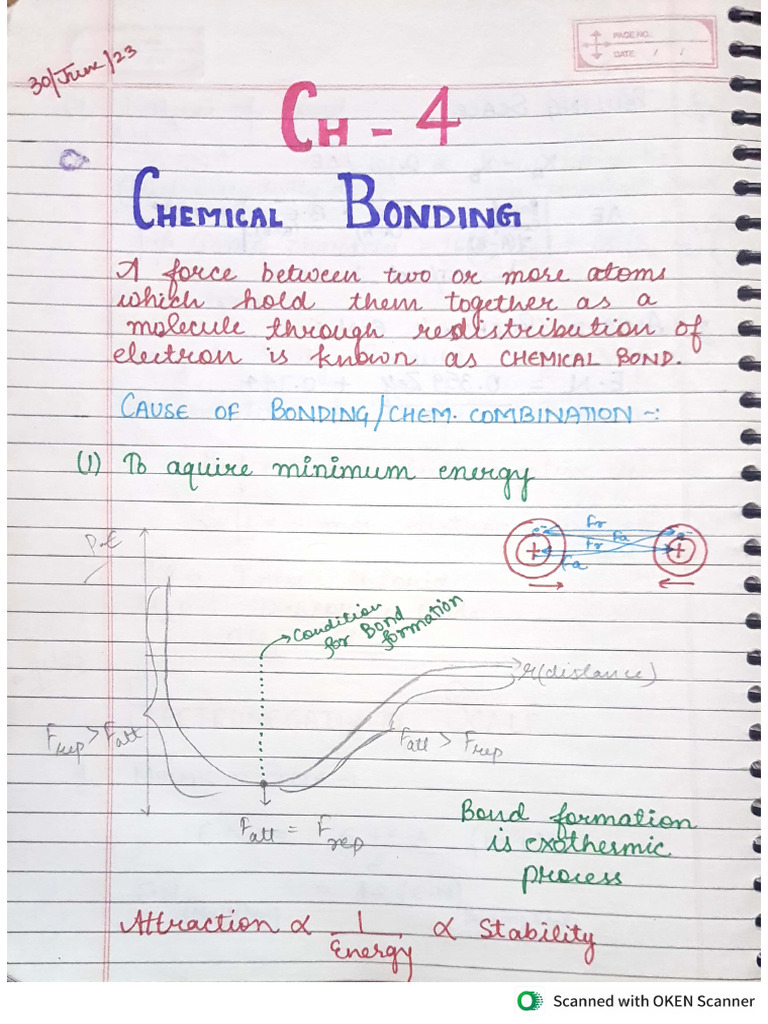 30/June/23
PAGE NO.
DATE / /
CH - 4
CHEMICAL BONDING
A force between two or more atoms
which hold them together as a
molecule through redistribution of
electron is known as CHEMICAL BOND.
CAUSE OF BONDING/CHEM. COMBINATION -:
(1) To aquire minimum energy
P.E
e- Fr e-
Fa
+ Fr +
Fa
Condition
for Bond
formation
r(distance)
Frep > Fatt
Fatt > Frep
Fatt = Frep
Bond formation
is exothermic
process
Attraction ∝ 1/Energy ∝ Stability
Scanned with OKEN Scanner